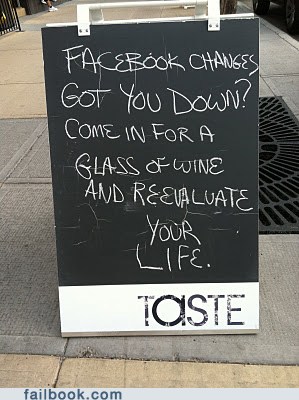 FACEBOOK CHANGES
GOT YOU DOWN?
COME IN FOR A
GLASS OF WINE
AND REEVALUATE
YOUR
LIFE.
TASTE
failbook.com